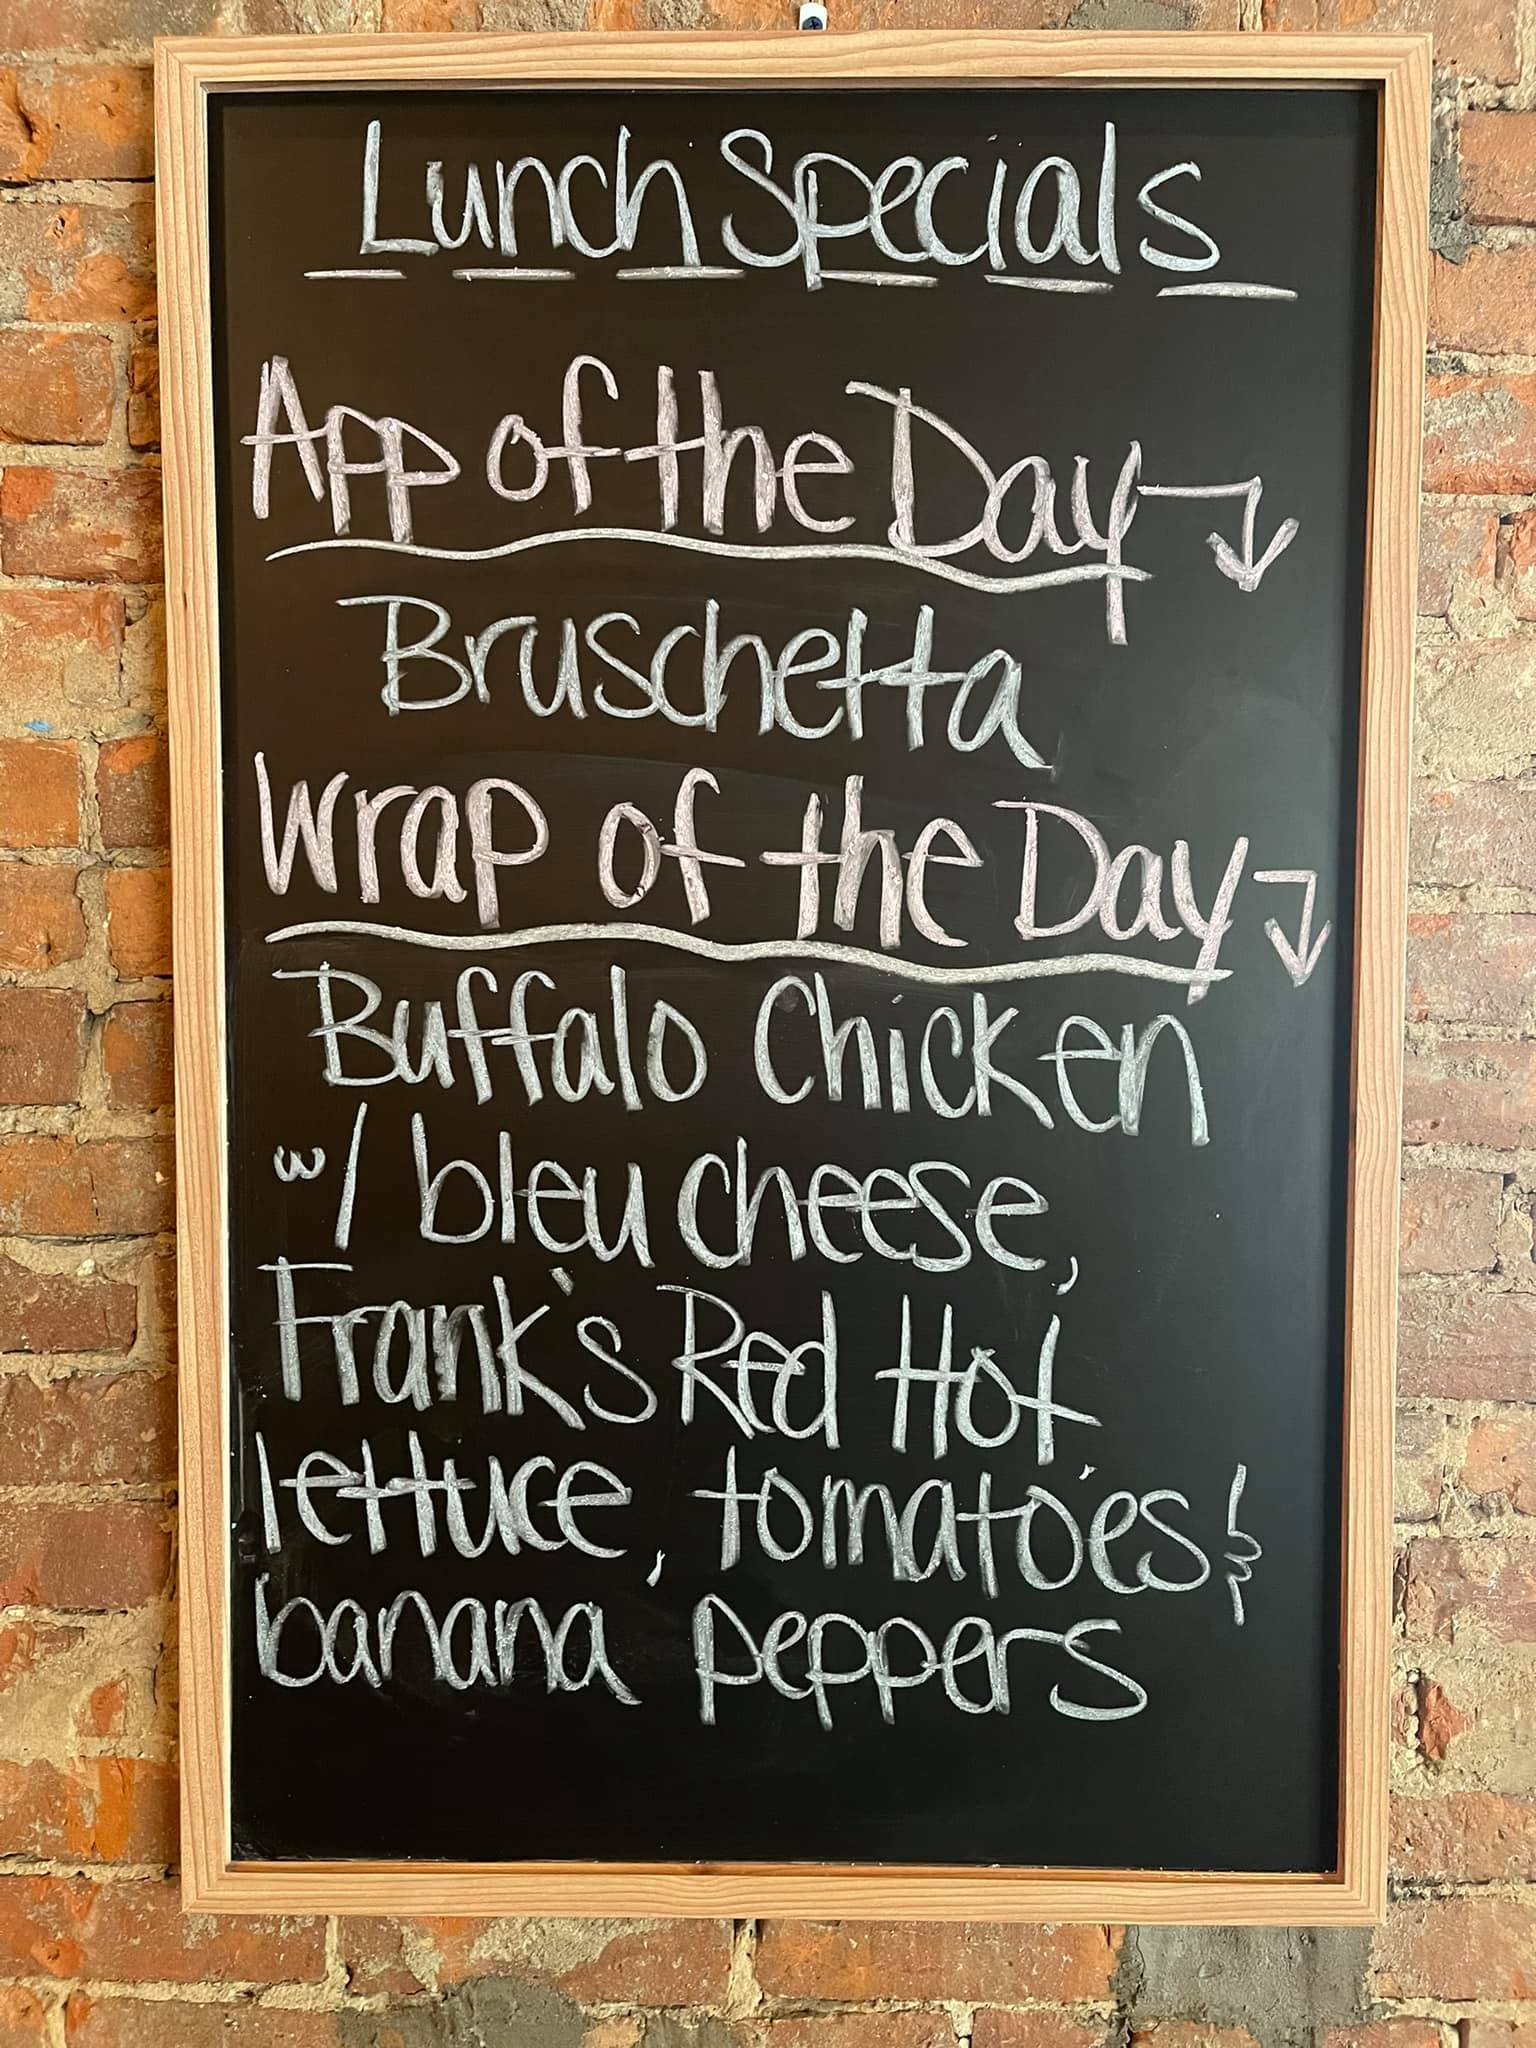 Lunch Specials
App of the Day
Bruschetta
Wrap of the Day
Buffalo Chicken
w/ bleu cheese,
Frank's Red Hot
lettuce, tomatoes &
banana peppers